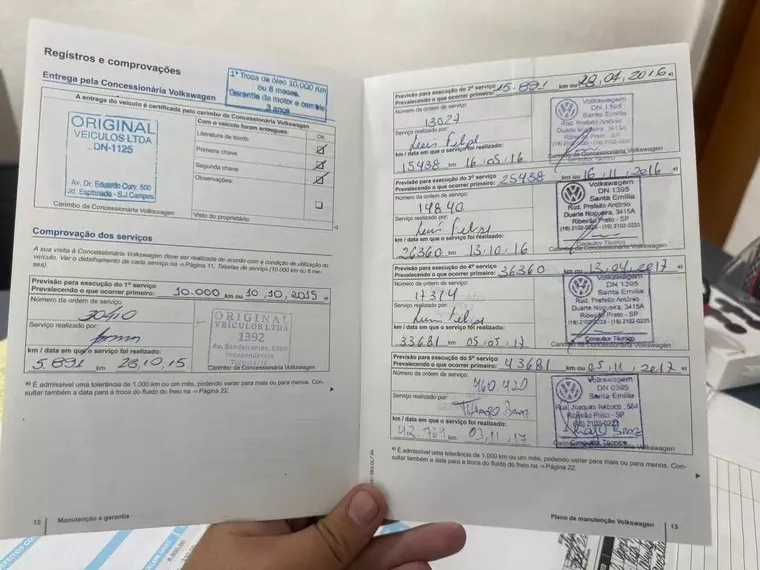 Registros e comprovações
Entrega pela Concessionária Volkswagen
1ª Troca de óleo 10.000 Km
ou 6 meses.
Garantia de motor e cambio
3 anos
A entrega do veículo é certificada pelo carimbo da Concessionária Volkswagen
ORIGINAL
VEICULOS LTDA
DN-1125
Av. Dr. Eduardo Cury, 500
Jd. Esplanada - S.J.Campos
Carimbo da Concessionária Volkswagen
Com o veículo foram entregues:
OK
Literatura de bordo
Primeira chave
Segunda chave
Observações:
Visto do proprietário:
Comprovação dos serviços
A sua visita à Concessionária Volkswagen deve ser realizada de acordo com a condição de utilização do
veículo. Ver o detalhamento de cada serviço na ⇒ Página 11, Tabelas de serviço (10.000 km ou 6 me-
ses).
Previsão para execução do 1º serviço
Prevalecendo o que ocorrer primeiro: 10.000 km ou 10,10,2015 a)
Número da ordem de serviço:
30410
Serviço realizado por:
km / data em que o serviço foi realizado:
5.891 km 28,10,15
ORIGINAL
VEÍCULOS LTDA
1392
Av. Bandeirantes, 5390
Independencia
Carimbo da Concessionária Volkswagen
a) É admissível uma tolerância de 1.000 km ou um mês, podendo variar para mais ou para menos. Con-
sultar também a data para a troca do fluido do freio na ⇒ Página 22.
12 Manutenção e garantia
Previsão para execução do 2º serviço
Prevalecendo o que ocorrer primeiro: 15.891 km ou 28.04.2016 a)
Número da ordem de serviço:
13027
Serviço realizado por:
Luis Felipe
km / data em que o serviço foi realizado:
15438 km 16.05.16
Volkswagem
DN 1395
Santa Emilia
Rod. Prefeito Antônio
Duarte Nogueira, 3415A
Ribeirão Preto - SP
Carimbo da Concessionária Volkswagen
Previsão para execução do 3º serviço
Prevalecendo o que ocorrer primeiro: 25438 km ou 16,11,2016 a)
Número da ordem de serviço:
14840
Serviço realizado por:
Luis Felipe
km / data em que o serviço foi realizado:
26360 km 13.10.16
Volkswagem
DN 1395
Santa Emilia
Rod. Prefeito Antônio
Duarte Nogueira, 3415A
Ribeirão Preto - SP
Consultor Técnico
Previsão para execução do 4º serviço
Prevalecendo o que ocorrer primeiro: 36360 km ou 13.04.2017 a)
Número da ordem de serviço:
17374
Serviço realizado por:
Luis Felipe
km / data em que o serviço foi realizado:
33681 km 05.05.17
Volkswagem
DN 1395
Santa Emilia
Rod. Prefeito Antônio
Duarte Nogueira, 3415A
Ribeirão Preto - SP
Consultor Técnico
Carimbo da Concessionária Volkswagen
Previsão para execução do 5º serviço
Prevalecendo o que ocorrer primeiro: 43681 km ou 05,11,2017 a)
Número da ordem de serviço:
460420
Serviço realizado por:
km / data em que o serviço foi realizado:
42.764 km 03,11,17
Volkswagem
DN 0395
Santa Emilia
Rua Joaquim Nabuco, 584
Ribeirão Preto - SP
Consultor Técnico
Carimbo da Concessionária Volkswagen
a) É admissível uma tolerância de 1.000 km ou um mês, podendo variar para mais ou para menos. Con-
sultar também a data para a troca do fluido do freio na ⇒ Página 22.
Plano de manutenção Volkswagen 13